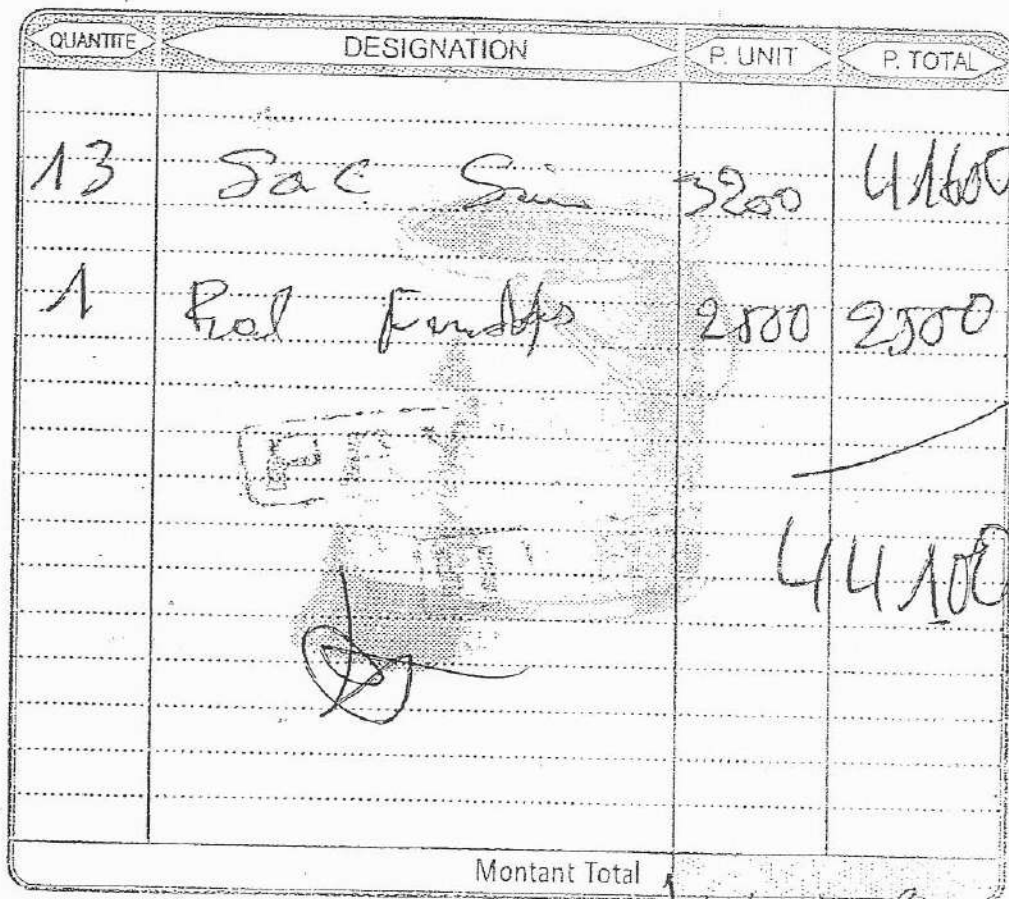 QUANTITE DESIGNATION P. UNIT P. TOTAL
13 Sac 3200 41600
1 2500 2500
44100
Montant Total